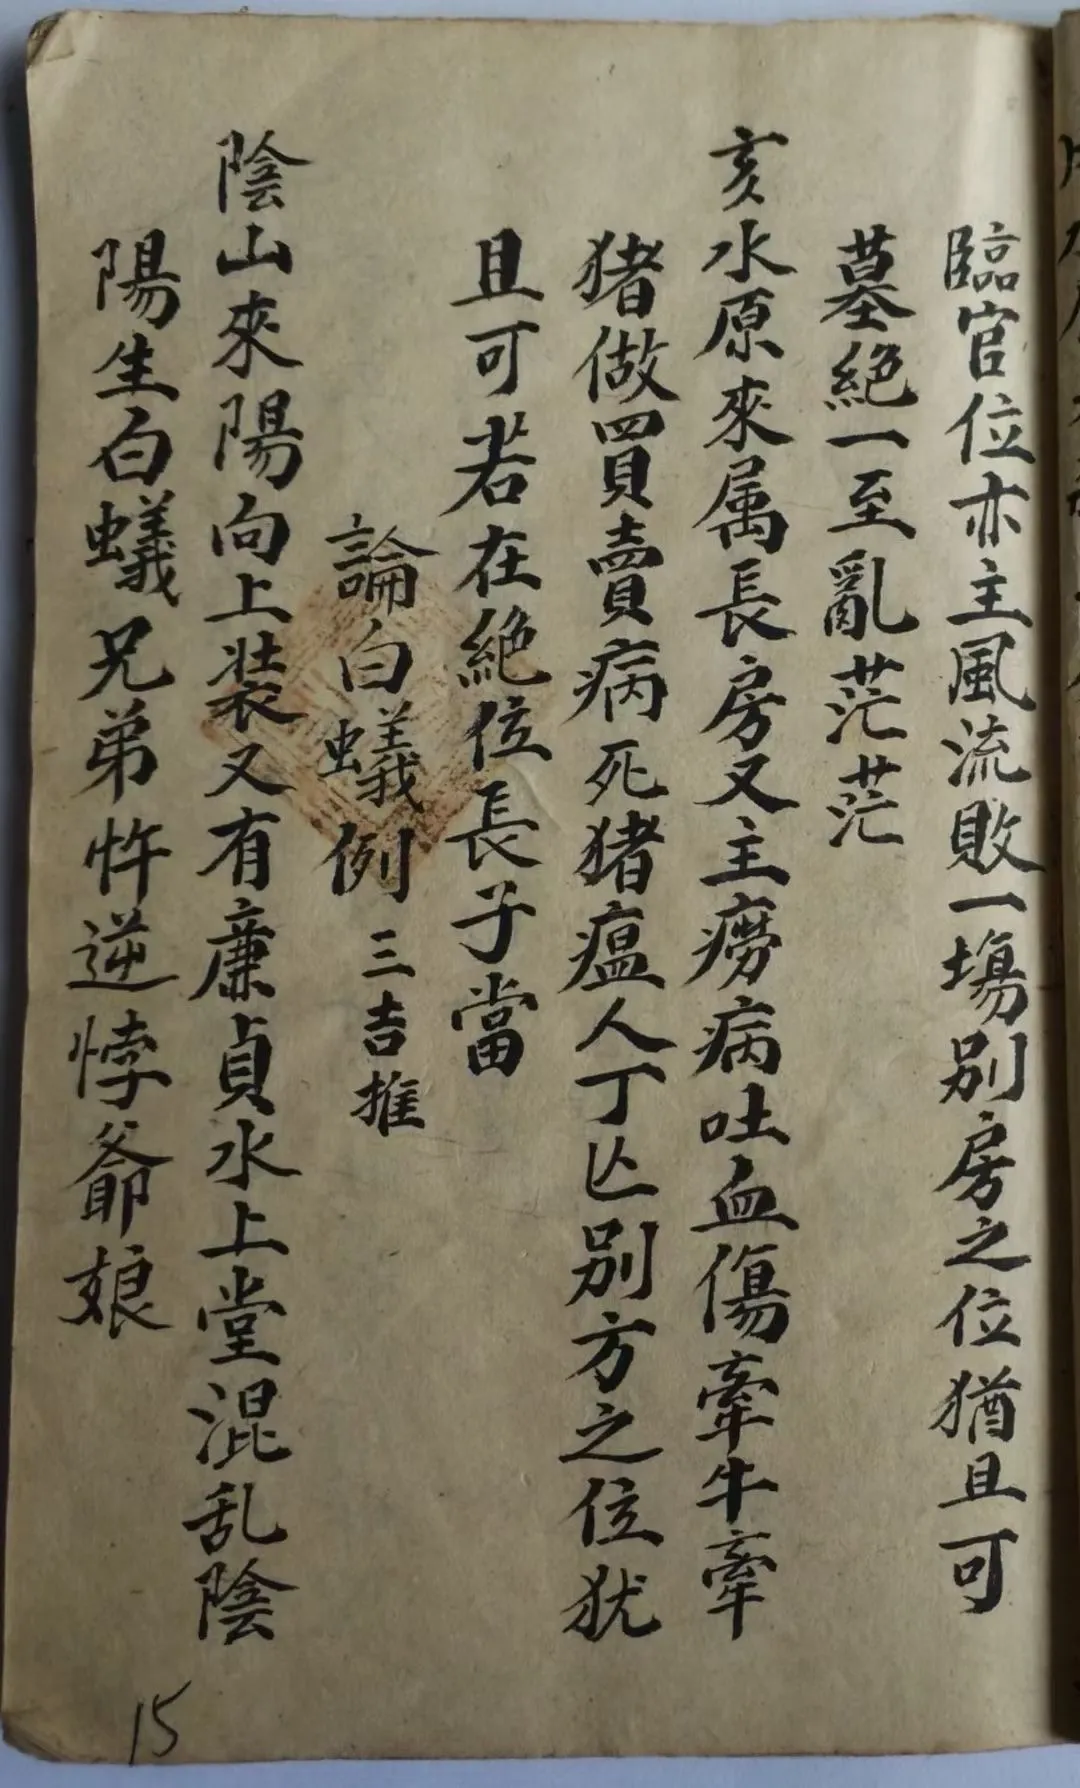 臨官位亦主風流敗一塲別房之位猶且可
墓絕一至亂茫茫
亥水原來属長房又主癆病吐血傷牽牛牽
猪做買賣病死猪瘟人丁亡别方之位犹
且可若在絕位長子當
論白蟻例三吉推
陰山來陽向上装又有亷貞水上堂混乱陰
陽生白蟻兄弟忤逆悖爺娘
15